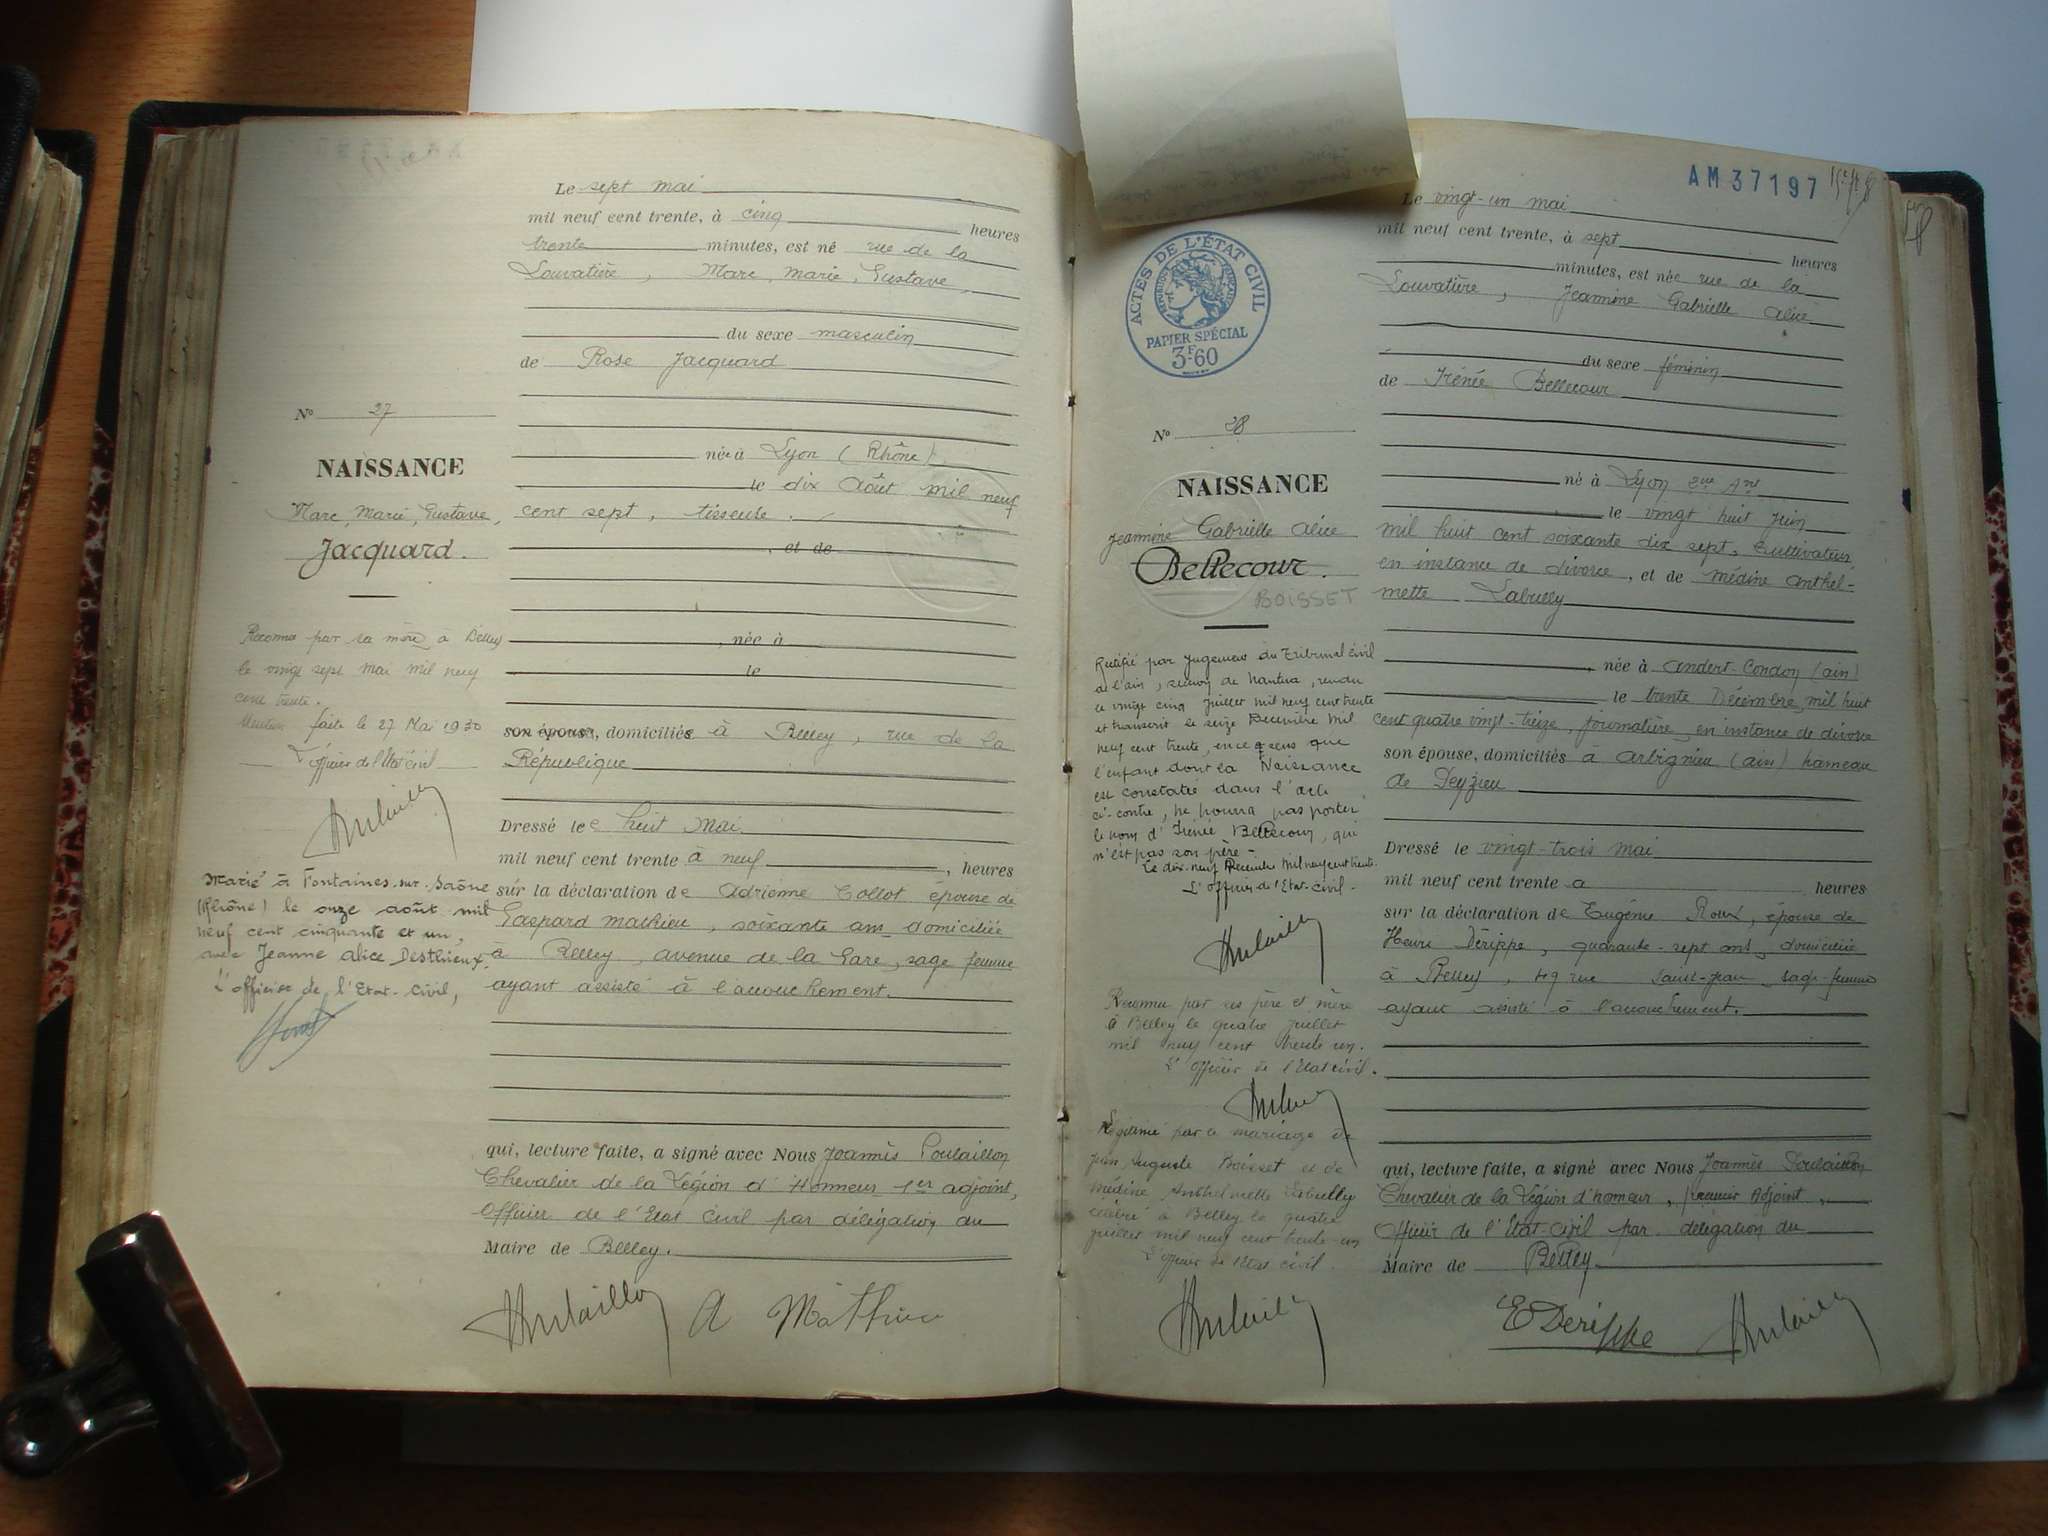 Le sept mai
mil neuf cent trente, à cinq heures
trente minutes, est né rue de la
Louvatière, Marc, Marie, Gustave,
du sexe masculin
de Rose Jacquard
née à Lyon (Rhône)
le dix Août mil neuf
cent sept, tisseuse.
, et de
, née à
le
son épouse, domiciliée à Belley, rue de la
République
Dressé le huit Mai
mil neuf cent trente à neuf, heures
sur la déclaration de Adrienne Collot épouse de
Gaspard Mathieu, soixante ans domiciliée
à Belley, avenue de la Gare, sage femme
ayant assisté à l'accouchement.
qui, lecture faite, a signé avec Nous Joannès Poulaillon
Chevalier de la Légion d'Honneur 1er adjoint,
Officier de l'Etat Civil par délégation du
Maire de Belley.
A Mathieu
No 27
NAISSANCE
Marc, Marie, Gustave,
Jacquard.
Reconnu par sa mère à Belley
le vingt sept mai mil neuf
cent trente.
Mention faite le 27 Mai 1930
L'officier de l'Etat civil
Marié à Fontaines-sur-Saône
(Rhône) le onze août mil
neuf cent cinquante et un,
avec Jeanne Alice Desthieux.
L'officier de l'Etat-Civil,
AM37197
ACTES DE L'ÉTAT CIVIL
RÉPUBLIQUE FRANÇAISE
PAPIER SPÉCIAL
3F60
Le vingt-un mai
mil neuf cent trente, à sept heures
minutes, est née rue de la
Louvatière, Jeannine Gabrielle Alice
du sexe féminin
de Irénée Bellecour
né à Lyon 2me Art
le vingt huit Juin
mil huit cent soixante dix sept, cultivateur
en instance de divorce, et de Médine Anthel-
mette Labully
, née à Andert-Condon (Ain)
le trente Décembre mil huit
cent quatre vingt-treize, journalière, en instance de divorce
son épouse, domiciliés à Arbignieu (Ain) hameau
de Peyzieu
Dressé le vingt-trois mai
mil neuf cent trente à heures
sur la déclaration de Eugénie Roux, épouse de
Henri Dérippe, quarante-sept ans, domiciliée
à Belley, 49 rue Saint-Jean sage-femme
ayant assisté à l'accouchement.
qui, lecture faite, a signé avec Nous Joannès Poulaillon
Chevalier de la Légion d'honneur, premier Adjoint,
Officier de l'Etat-Civil par délégation du
Maire de Belley
E Derippe
No 28
NAISSANCE
Jeannine Gabrielle Alice
Bellecour.
BOISSET
Rectifié par Jugement du Tribunal civil
de l'Ain, section de Nantua, rendu
le vingt cinq Juillet mil neuf cent trente
et transcrit le seize Décembre mil
neuf cent trente, en ce sens que
l'enfant dont la Naissance
est constatée dans l'acte
ci-contre, ne pourra pas porter
le nom d'Irénée Bellecour, qui
n'est pas son père.
Le dix-neuf Décembre mil neuf cent trente.
L'Officier de l'Etat-civil.
Reconnue par ses père et mère
à Belley le quatre Juillet
mil neuf cent trente un.
L'officier de l'Etat civil.
Légitimée par le mariage de
Jean Auguste Boisset et de
Médine Anthelmette Labully
célébré à Belley le quatre
Juillet mil neuf cent trente un
L'officier de l'Etat civil.